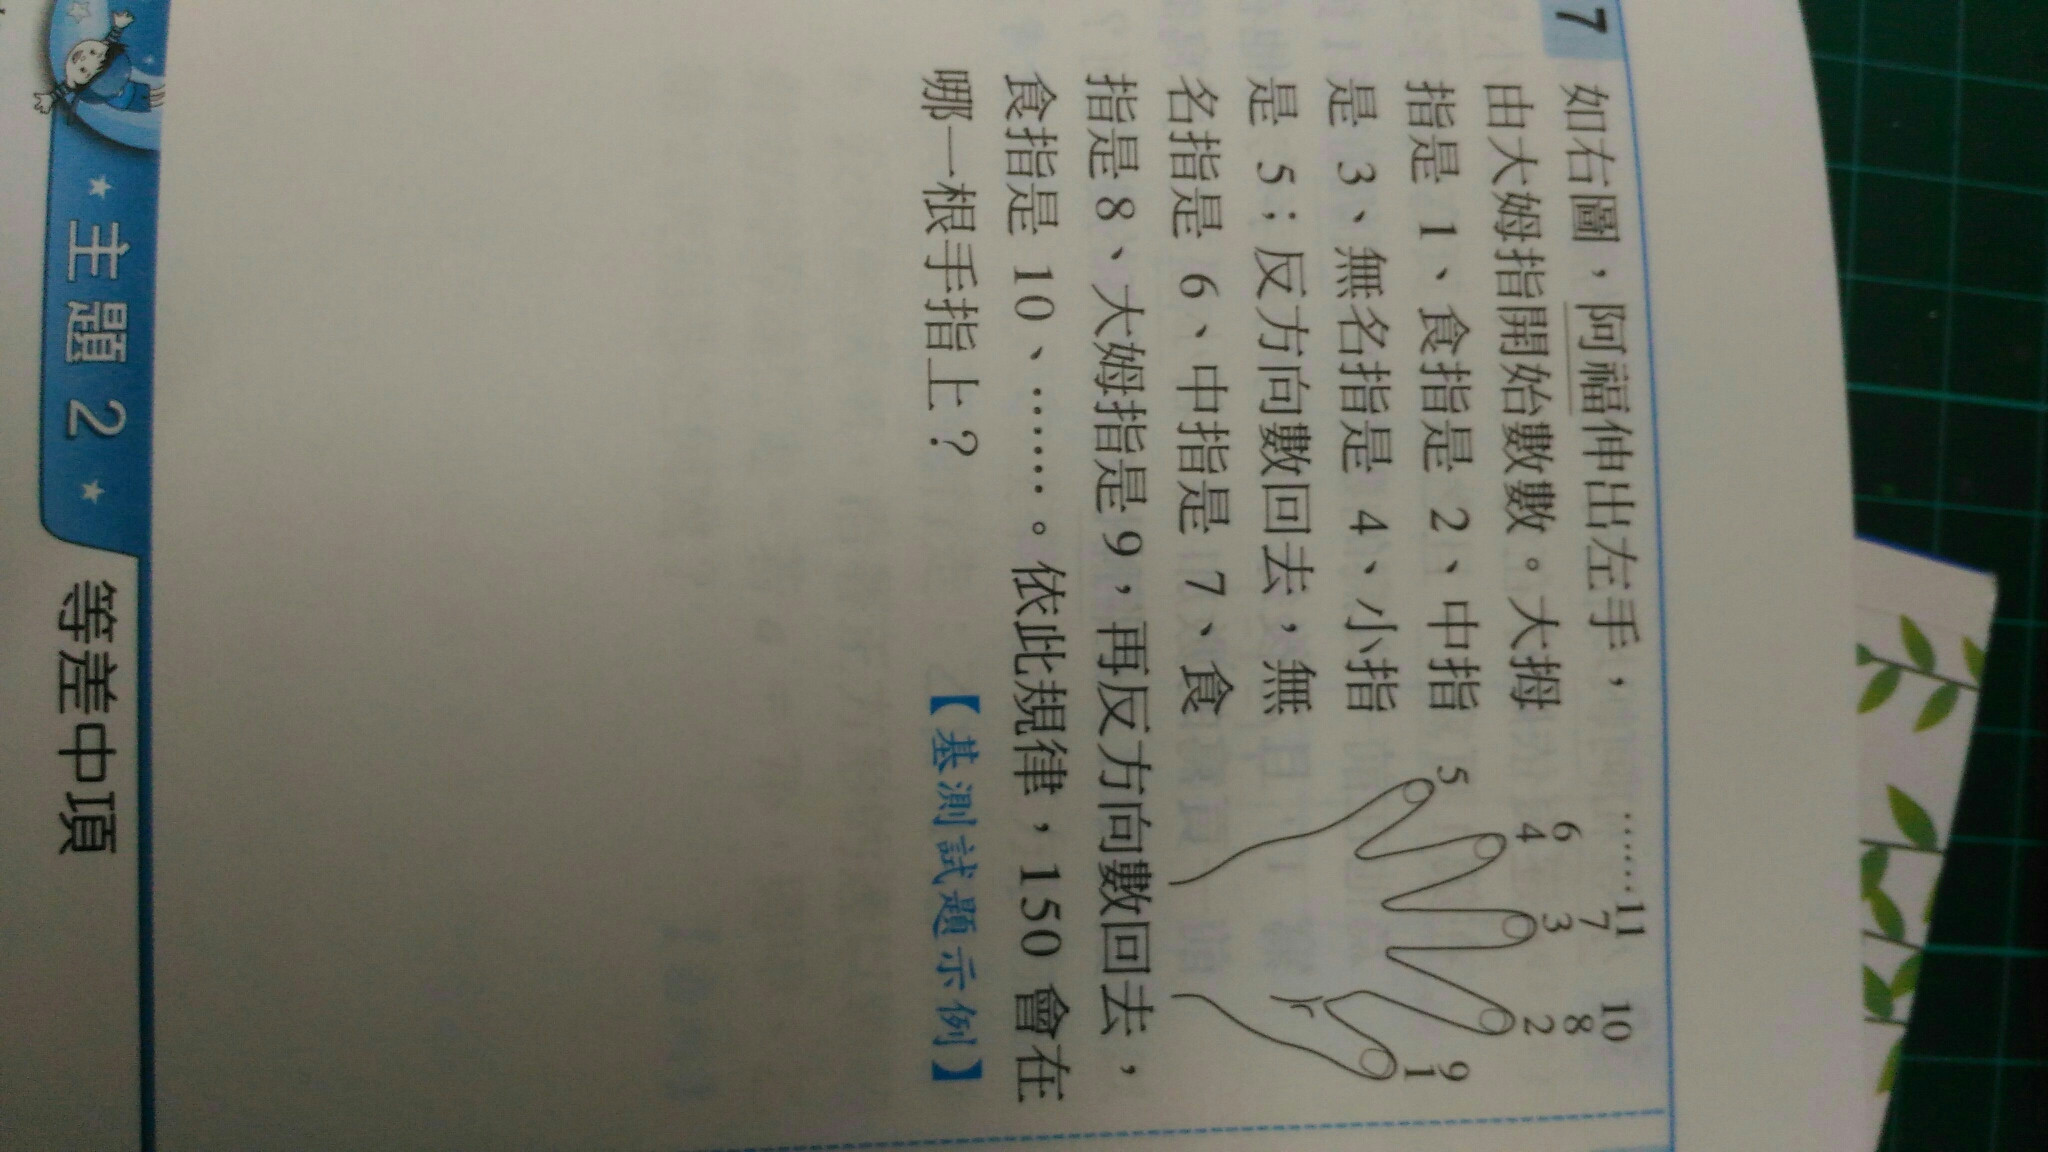 7
如右圖，阿福伸出左手，
由大姆指開始數數。大拇
指是 1、食指是 2、中指
是 3、無名指是 4、小指
是 5；反方向數回去，無
名指是 6、中指是 7、食
指是 8、大姆指是 9，再反方向數回去，
食指是 10、……。依此規律，150 會在
哪一根手指上？
【基測試題示例】
……11 10
6 7 8 9
5 4 3 2 1
主題 2
等差中項